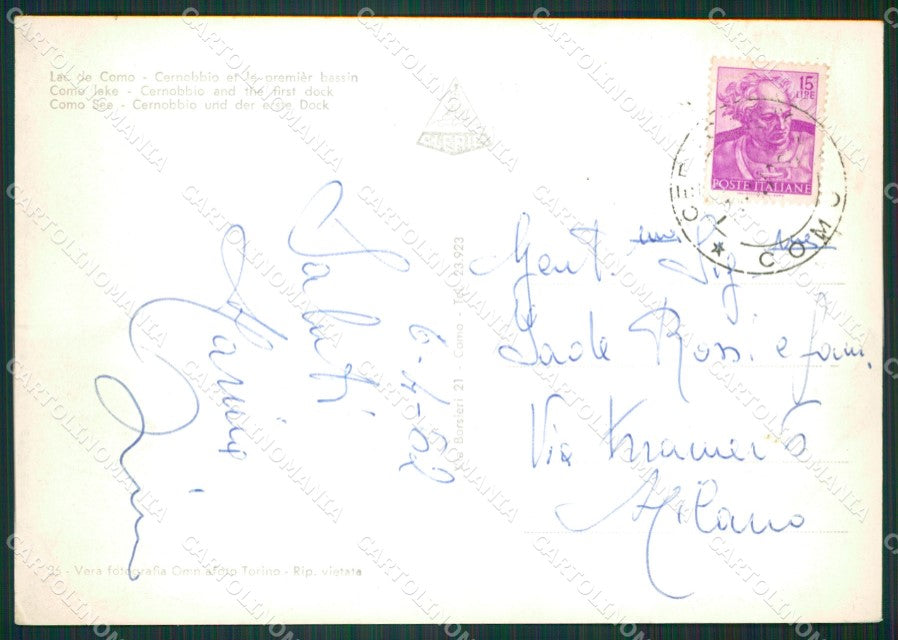 Lac de Como - Cernobbio et le premièr bassin
Como lake - Cernobbio and the first dock
Como See - Cernobbio und der erste Dock
15
LIRE
POSTE ITALIANE
COMO
Gent. Sig.
Jade Rossi e fam.
Via Kramer 6
Milano
Saluti
6-4-62
Borsieri 21 - Como - Tel. 23.923
26 - Vera fotografia Omniafoto Torino - Rip. vietata
CARTOLINOMANIA